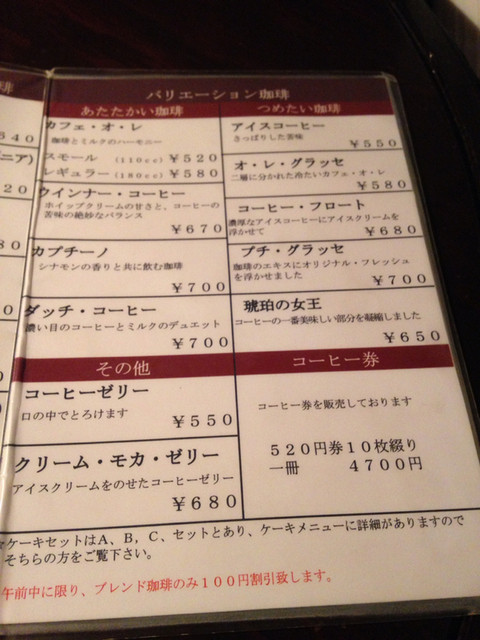 バリエーション珈琲
あたたかい珈琲
カフェ・オ・レ
珈琲とミルクのハーモニー
スモール (110cc) ￥520
レギュラー (180cc) ￥580
ウインナー・コーヒー
ホイップクリームの甘さと、コーヒーの
苦味の絶妙なバランス
￥670
カプチーノ
シナモンの香りと共に飲む珈琲
￥700
ダッチ・コーヒー
濃い目のコーヒーとミルクのデュエット
￥700
つめたい珈琲
アイスコーヒー
さっぱりした苦味
￥550
オ・レ・グラッセ
二層に分かれた冷たいカフェ・オ・レ
￥580
コーヒー・フロート
濃厚なアイスコーヒーにアイスクリームを
浮かせて
￥680
プチ・グラッセ
珈琲のエキスにオリジナル・フレッシュ
を浮かせました
￥700
琥珀の女王
コーヒーの一番美味しい部分を凝縮しました
￥650
その他
コーヒーゼリー
口の中でとろけます
￥550
クリーム・モカ・ゼリー
アイスクリームをのせたコーヒーゼリー
￥680
コーヒー券
コーヒー券を販売しております
520円券10枚綴り
一冊 4700円
☆ケーキセットはA、B，C、セットとあり、ケーキメニューに詳細がありますので
そちらの方をご覧下さい。
午前中に限り、ブレンド珈琲のみ100円割引致します。